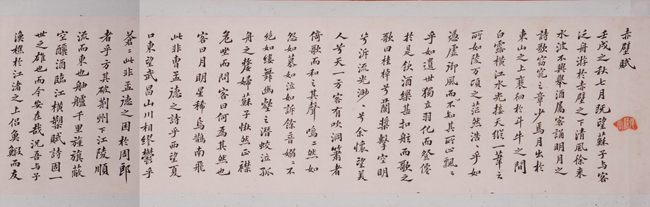 赤壁賦
壬戌之秋七月既望蘇子與客
泛舟游於赤壁之下清風徐來
水波不興舉酒屬客誦明月之
詩歌窈窕之章少焉月出於
東山之上裵徊於斗牛之間
白露橫江水光接天縱一葦之
所如陵萬頃之茫然浩〻乎如
憑虛御風而不知其所止飄〻
乎如遺世獨立羽化而登僊
於是飲酒樂甚扣舷而歌之
歌曰桂棹兮蘭槳擊空明
兮泝流光渺〻兮余懷望美
人兮天一方客有吹洞簫者
倚歌而和之其聲嗚〻然如
怨如慕如泣如訴餘音嫋〻不
絕如縷舞幽壑之潛蛟泣孤
舟之嫠婦蘇子愀然正襟
危坐而問客曰何為其然也
客曰月明星稀烏鵲南飛
此非曹孟德之詩乎西望夏
口東望武昌山川相繆鬱乎
蒼〻此非孟德之困於周郎
者乎方其破荊州下江陵順
流而東也舳艫千里旌旗蔽
空釃酒臨江橫槊賦詩固一
世之雄也而今安在哉況吾與子
漁樵於江渚之上侶魚鰕而友